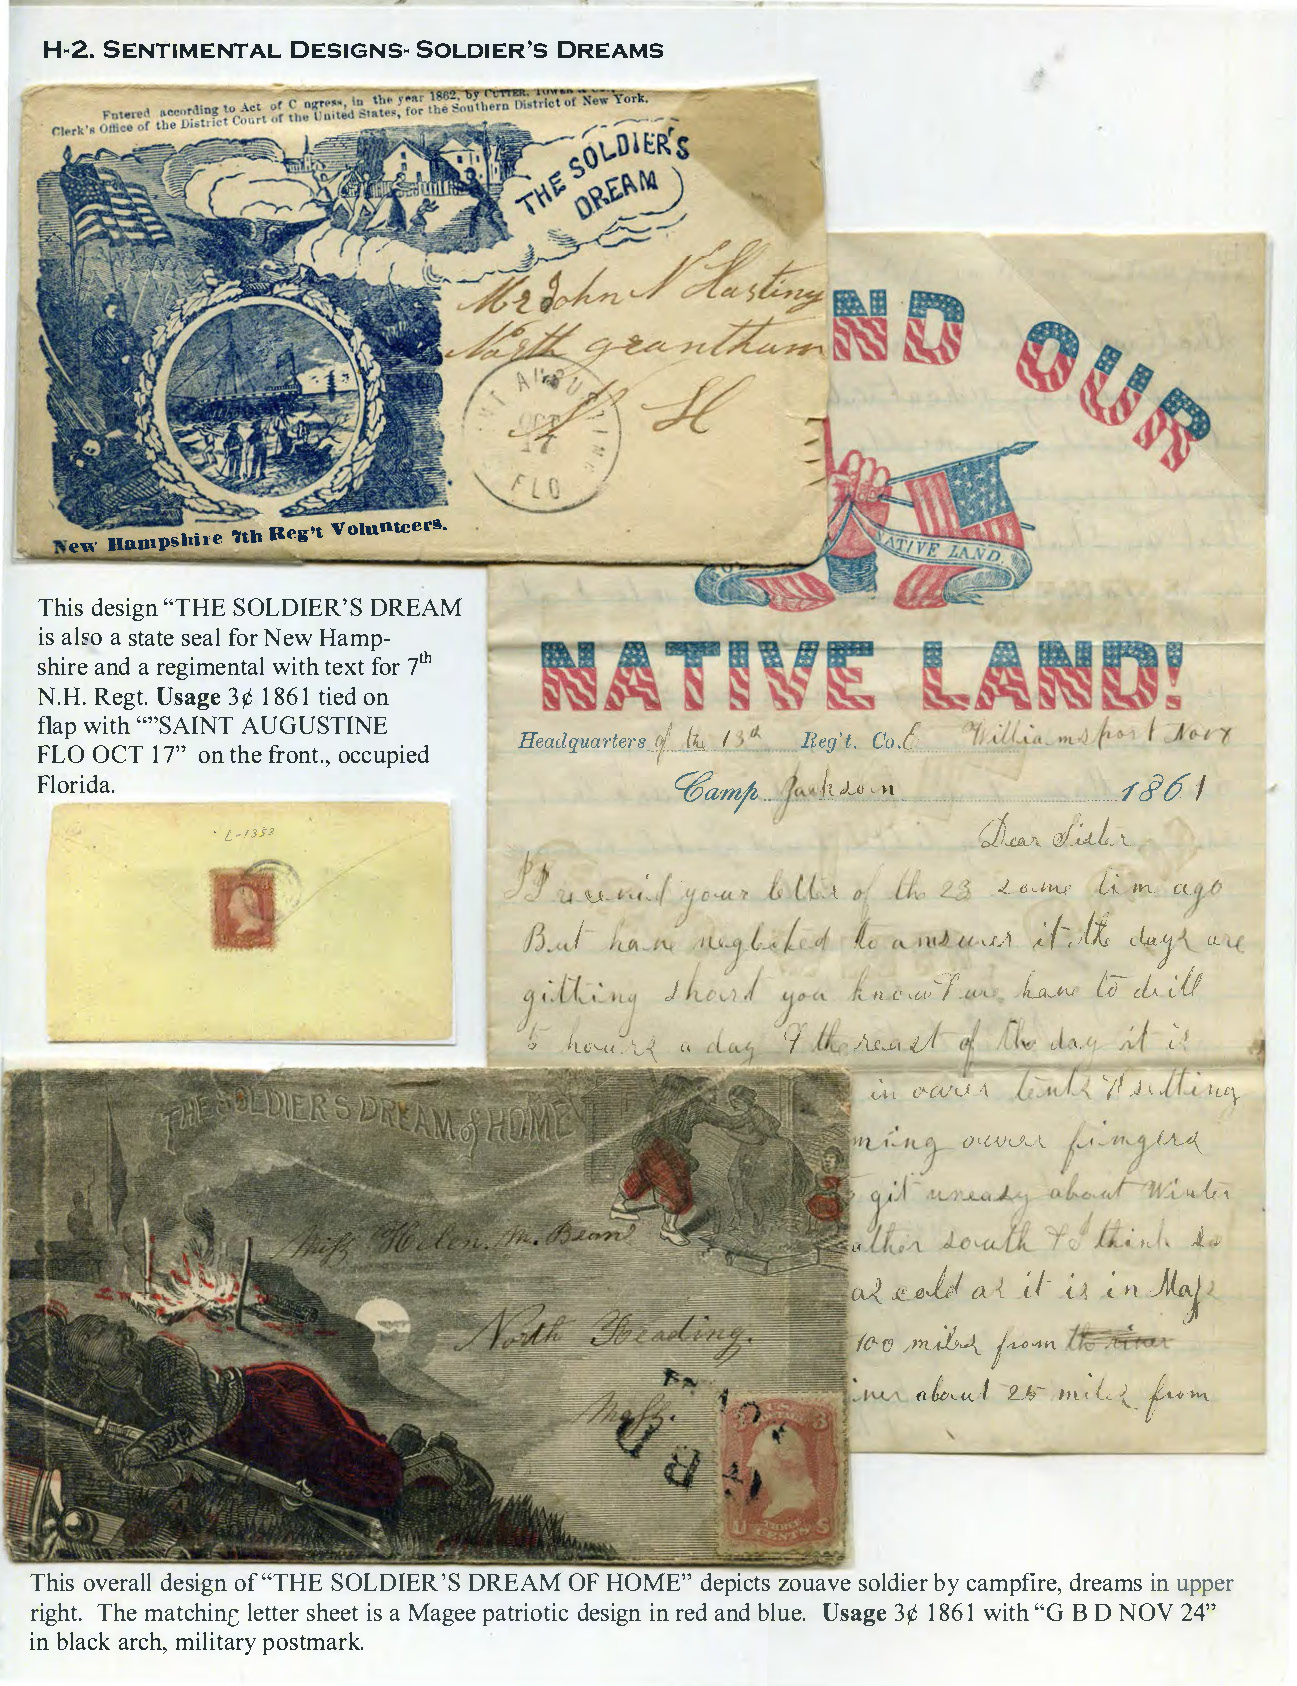 H-2. SENTIMENTAL DESIGNS- SOLDIER'S DREAMS
Entered according to Act of C ngress, in the year 1862, by CUTTER, TOWER &
Clerk's Office of the District Court of the United States, for the Southern District of New York.
THE SOLDIER'S
DREAM
Mr John N Hastings
North grantham
N H
SAINT AUGUSTINE
OCT
17
FLO
New Hampshire 7th Reg't Volunteers.
ND OUR
NATIVE LAND.
NATIVE LAND!
Headquarters of the 13th Reg't. Co. Williamsport Nov
Camp Jackson 1861
Dear Sister
I received your letter of the 23 some tim ago
But have neglected to answer it the days are
gitting short you know we have to drill
5 hours a day & the reast of the day it is
in ower tents setting
ming ower fingers
git uneasy about Winter
ather south & I think so
as cold as it is in Mass
100 miles from the river
iver about 25 miles from
This design “THE SOLDIER'S DREAM
is also a state seal for New Hamp-
shire and a regimental with text for 7th
N.H. Regt. Usage 3¢ 1861 tied on
flap with “”SAINT AUGUSTINE
FLO OCT 17” on the front., occupied
Florida.
L-1353
THE SOLDIER'S DREAM of HOME
Miss Helen. M. Bean
North Reading.
Mass.
3
U THREE S
CENTS
This overall design of “THE SOLDIER'S DREAM OF HOME” depicts zouave soldier by campfire, dreams in upper
right. The matching letter sheet is a Magee patriotic design in red and blue. Usage 3¢ 1861 with “G B D NOV 24”
in black arch, military postmark.